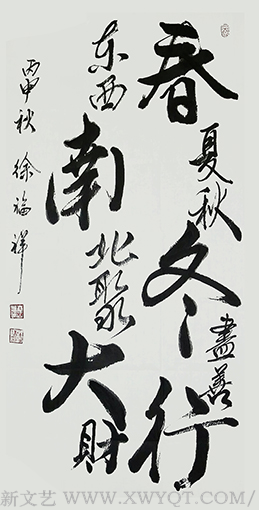 春夏秋冬行尽善
东西南北聚大财
丙申秋 徐福祥
新文艺 WWW.XWYQT.COM/